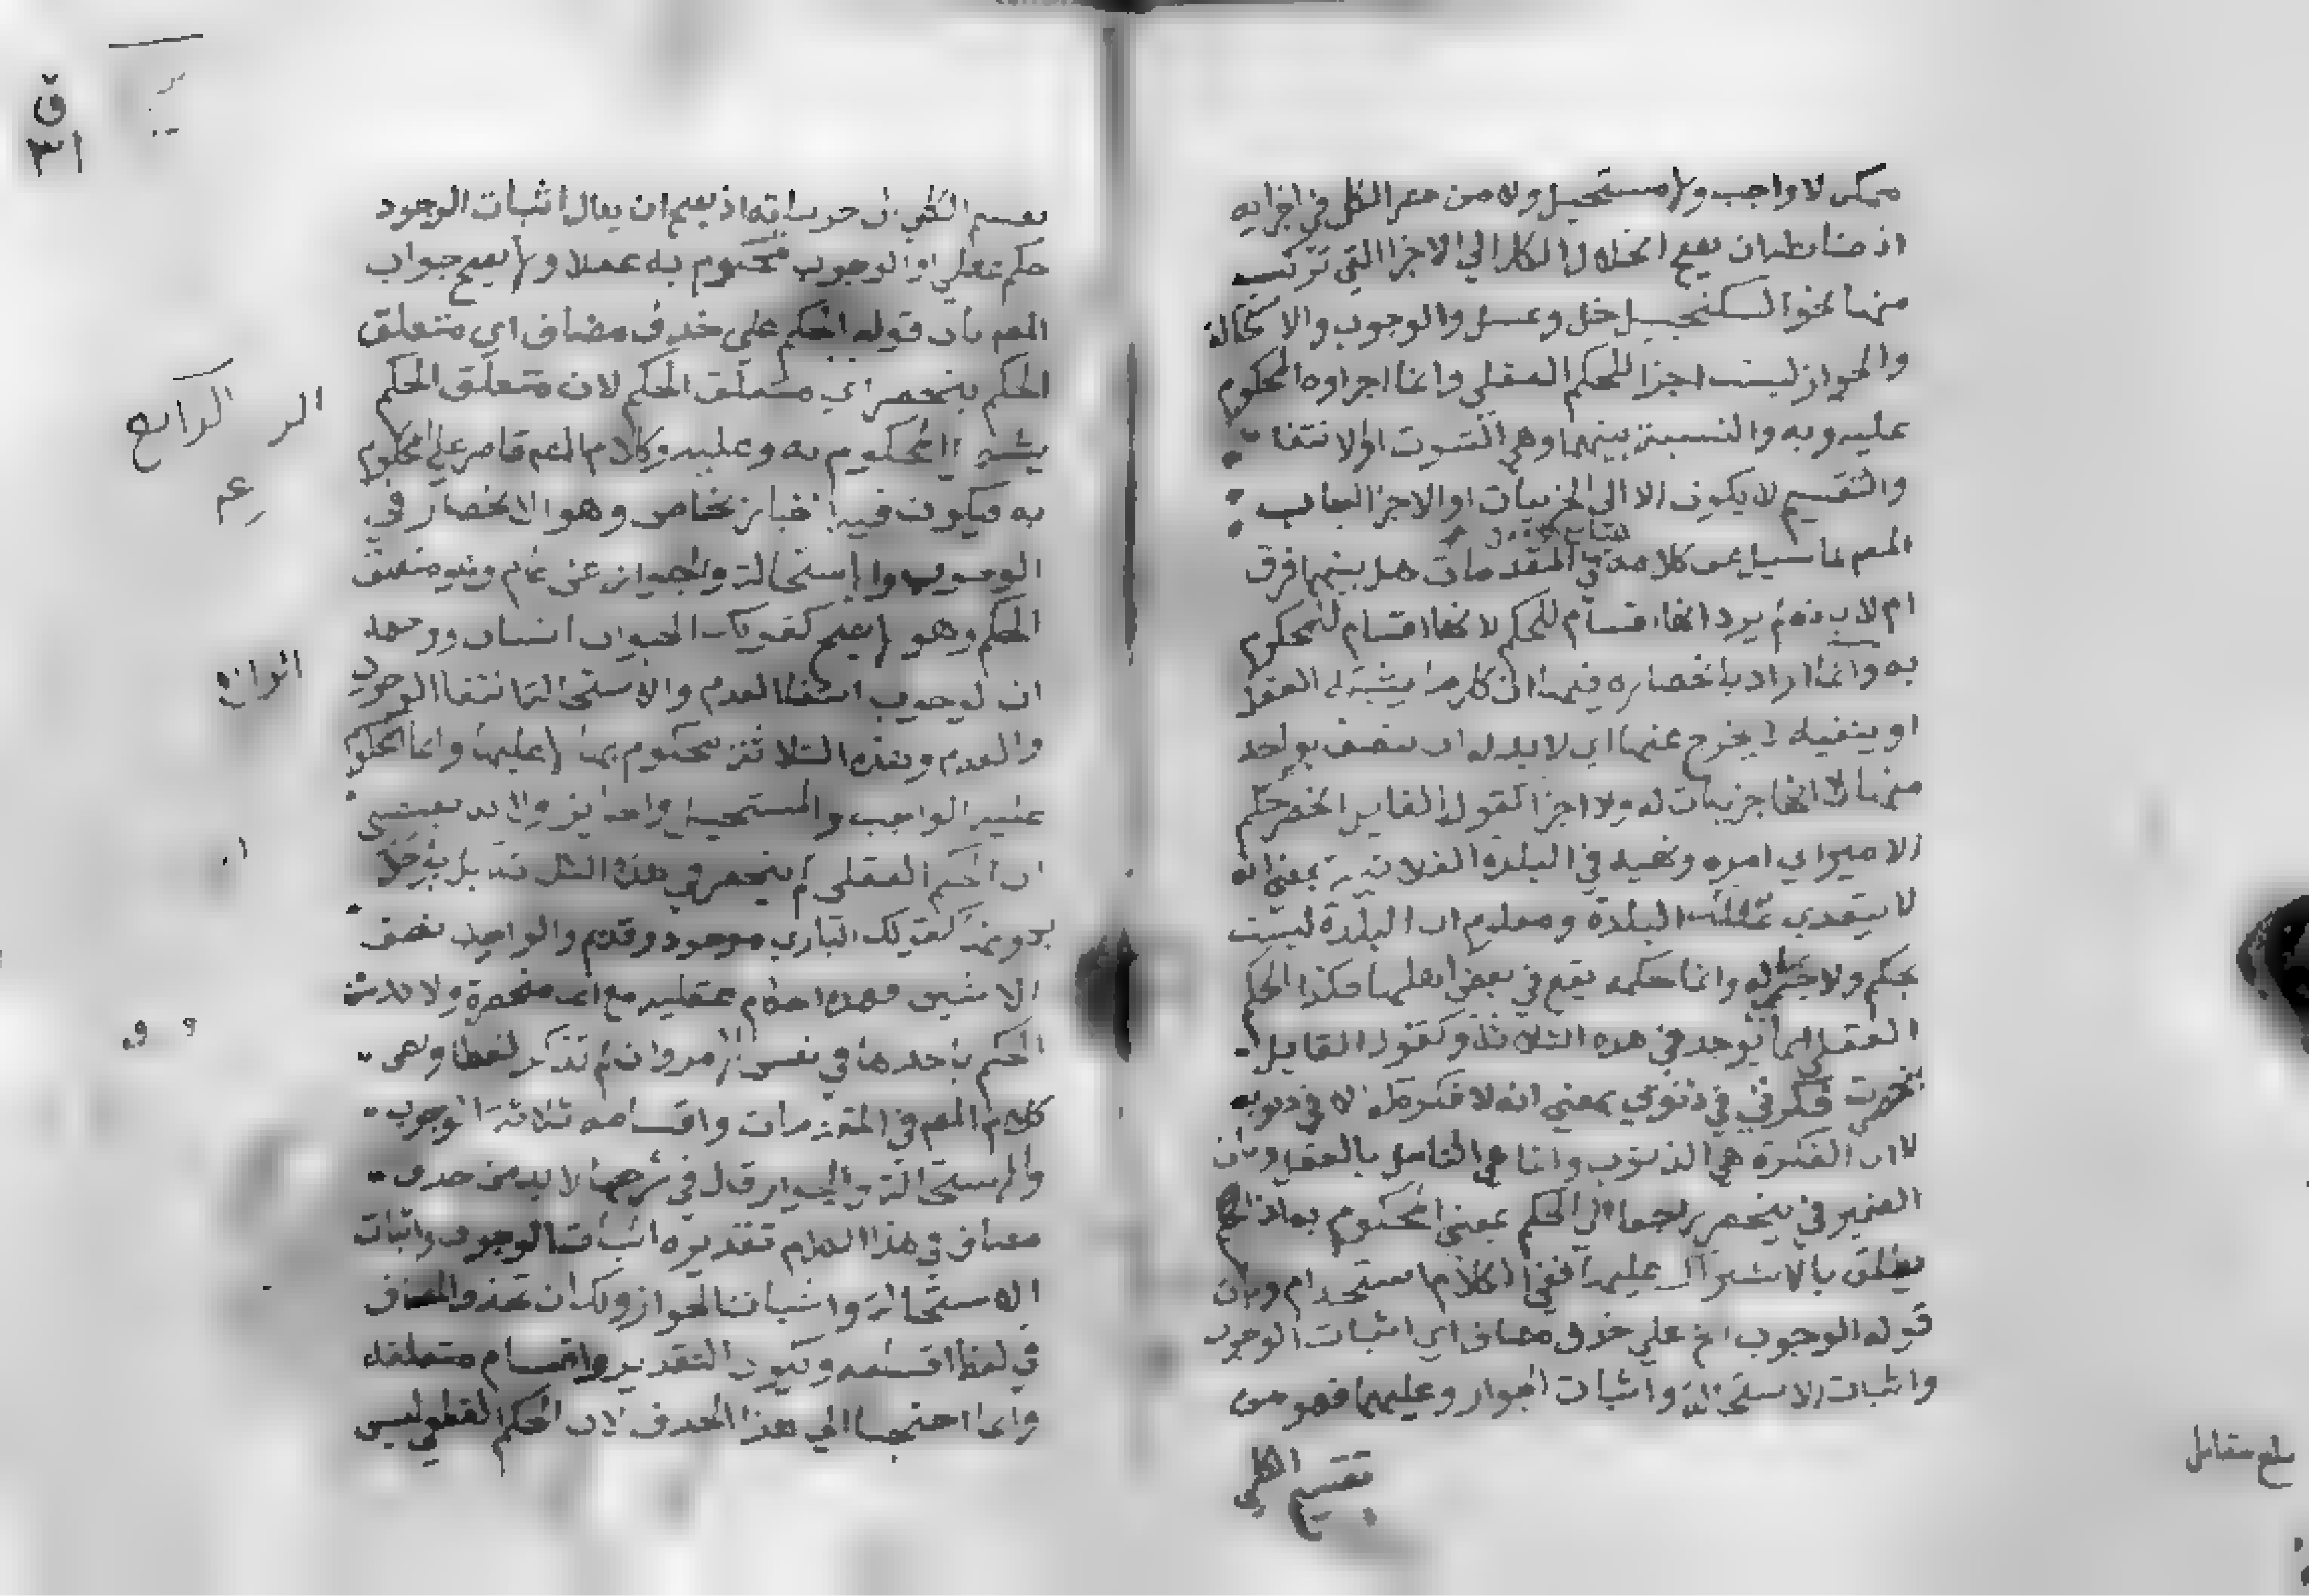 ممكن لا واجب ولا مستحيل ولا من حصر الكل في اجزايه
اذ ضابطه ان يصح انحلال الكل الي الاجزا التي تركب
منها نحو السكنجبيل خل وعسل والوجوب والاستحالة
والجواز ليست اجزا للحكم العقلي وانما اجزاوه المحكوم
عليه وبه والنسبة بينهما وهي الثبوت او الانتفا
والتقسيم لا يكون الا الى الجزييات او الاجزا اجاب
المص كلامه في المقدمات هل بينهما فرق
ام لا بانه لم يرد انها اقسام للحكم لانها اقسام للمحكوم
به وانما اراد بانحصاره فيها ان كل ما يثبته العقل
او ينفيه لا يخرج عنها اي لا بد له ان يتصف بواحد
منها لا انها جزييات له ولا اجزا كقول القايل انحصر حكم
الامير اي امره ونهيه في البلدة الفلانية بمعني انه
لا يتعدي تلك البلدة ومعلوم ان البلدة ليست
بحكم ولا جزء له وانما حكمه يقع في بعض اهلها فكذا الحكم
العقلي انما يوجد في هذه الثلاثة وكقول القايل
انحصرت فكرتي في ذنوبي بمعني انه لا فكرة له الا في ذنوبه
لا ان الفكرة هي الذنوب وانما هي التامل بالعقل وبان
الضمير في ينحصر راجعا الي الحكم بمعني المحكوم به اذ الحكم
يطلق بالاشتراك عليهما ففي الكلام استخدام وبان
قوله الوجوب الخ علي حذف مضاف اي اثبات الوجوب
واثبات الاستحالة واثبات الجواز وعليهما فهو من
تقسيم الكلي
بلغ مقابل
ق
٣١
تقسيم الكلي الى جزيياته اذ يصح ان يقال اثبات الوجود
حكم عقلي او الوجوب محكوم به عقلا ولا يصح جواب
المص بان قوله الحكم علي حذف مضاف اي متعلق
الحكم ينحصر اي متعلق الحكم لان متعلق الحكم
يشمل المحكوم به وعليه وكلام المص قاصر علي المحكوم
به فيكون فيه اخبار بخاص وهو الانحصار في
الوجوب والاستحالة والجواز عن عام وهو متعلق
الحكم وهو لا يصح كقولك الحيوان انسان ووجهه
ان الوجوب انتفا العدم والاستحالة انتفا الوجود
والعدم وهذه الثلاثة محكوم بها لا عليها وانما المحكوم
عليه الواجب والمستحيل والجايز
ان الحكم العقلي لم ينحصر في هذه الثلاثة بل
بدونها كقولك الباري موجود وقديم والواحد نصف
الاثنين فهذه احكام عقلية مع انها منحصرة ولا
الحكم باحدها في نفس الامر وان لم تذكر لفظا وهي
كلام المص في المقدمات واقسامه ثلاثة الوجوب
والاستحالة والجواز قال في شرحها لا بد من حذف
مضاف في هذا الكلام تقديره اثبات الوجوب واثبات
الاستحالة واثبات الجواز ولك ان تحذف المضاف
في لفظ اقسامه ويكون التقدير واقسام متعلقه
وانما احتجنا الي هذا الحذف لان الحكم العقلي ليس
الرابع